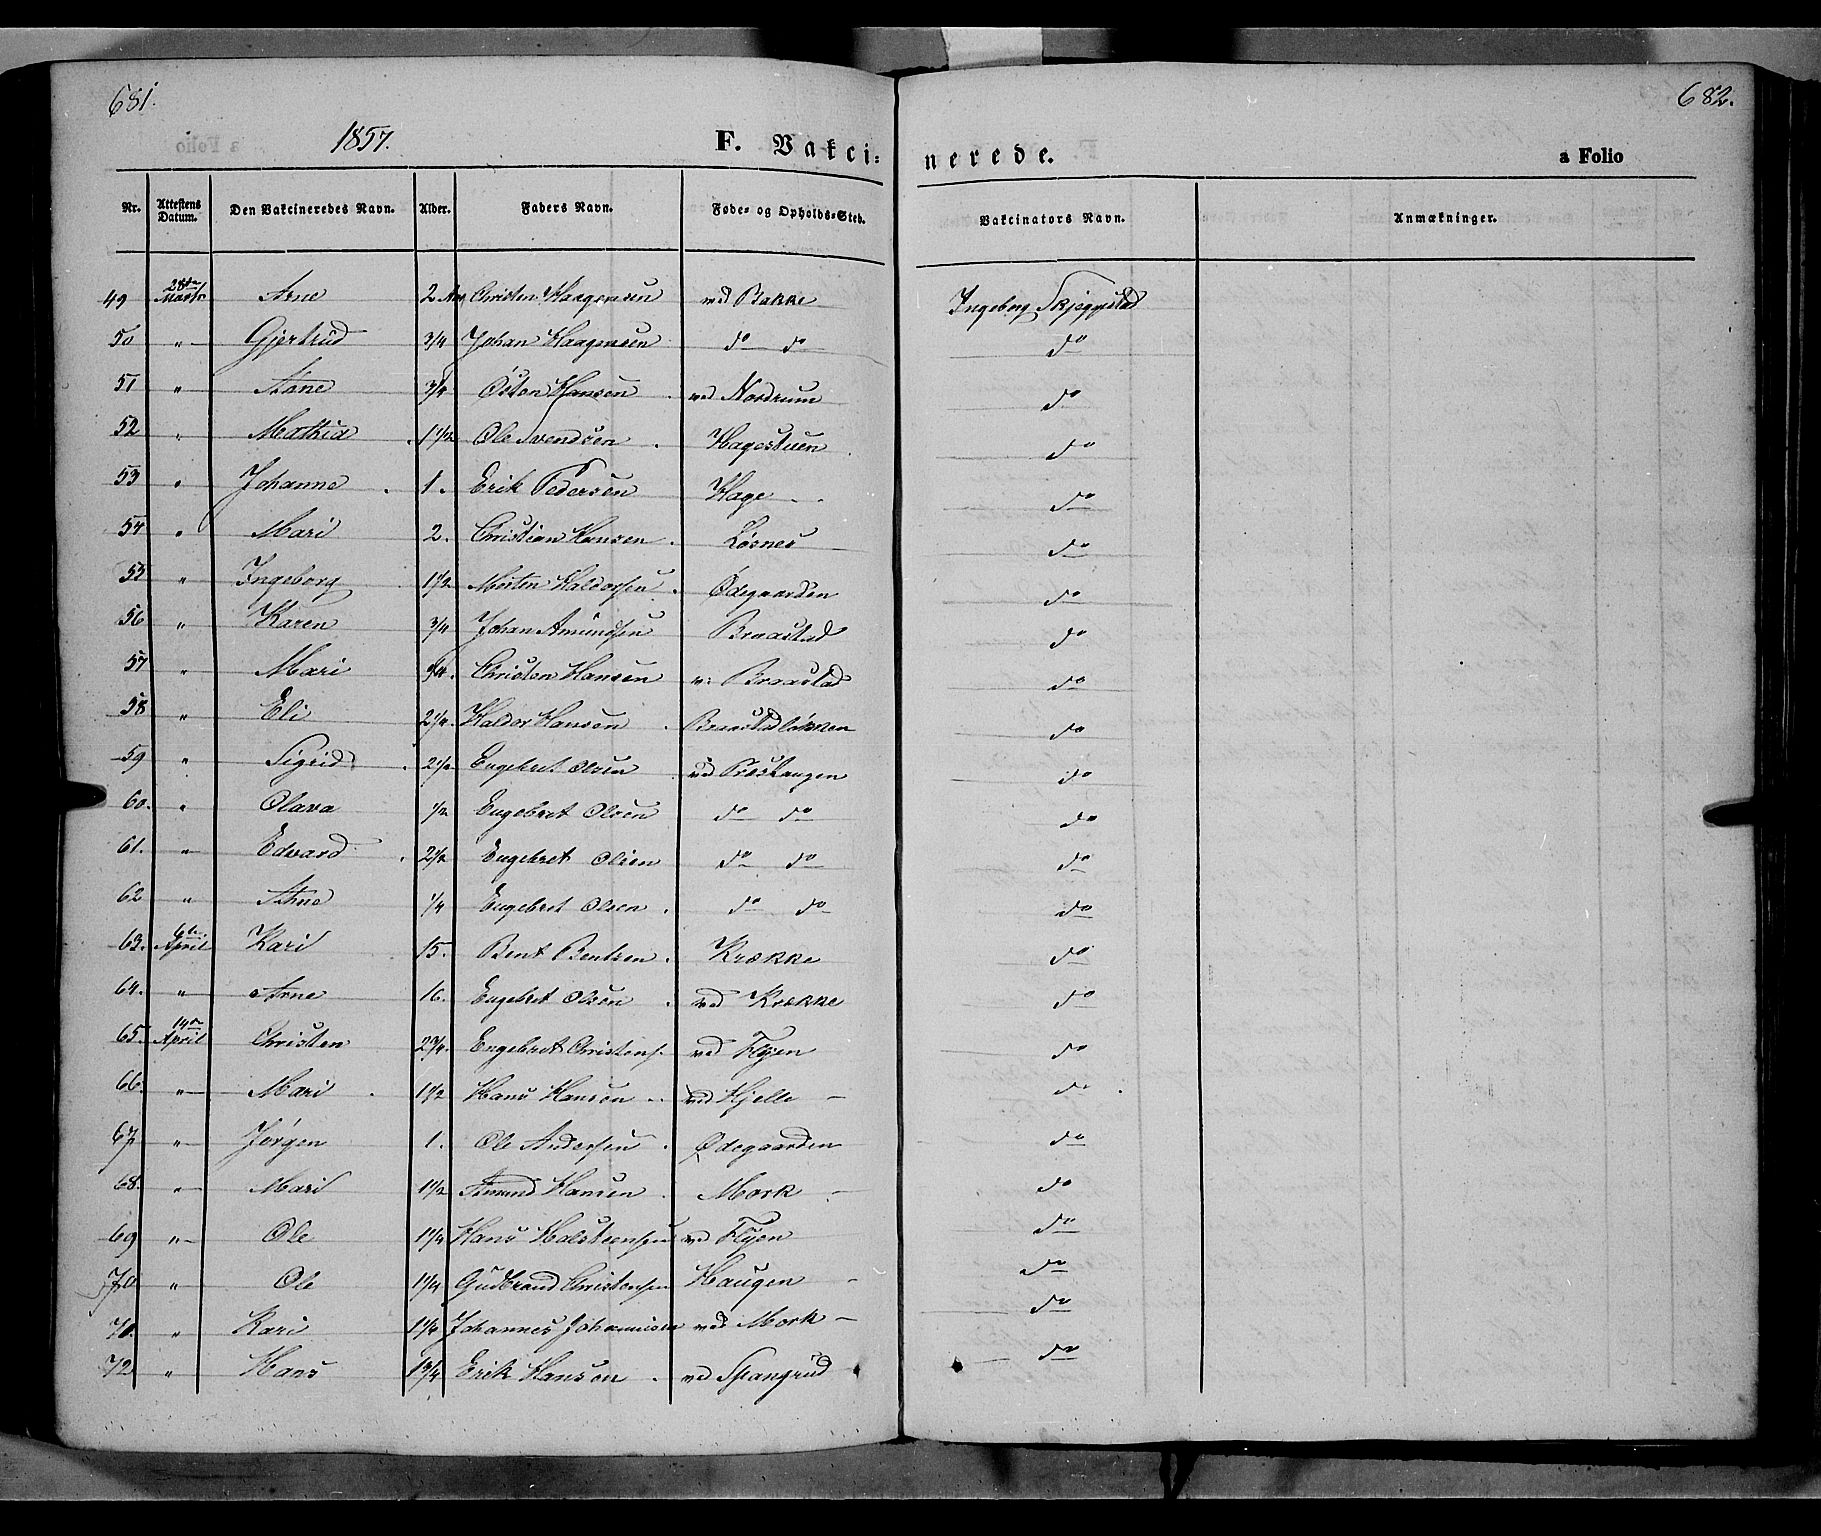 681.
682.
1857.
F. Vakci-nerede.
a Folio
Nr. Attestens Datum. Den Vakcineredes Navn. Alder. Faders Navn. Føde- og Opholds-Sted. Vakcinators Navn. Anmærkninger.
49 28de Marts Arne 2 Aar Christen Haagensen ved Bakke Ingeborg Skjeggestad
50 " Gjertrud 3/4 Johan Haagensen do do do
51 " Anne 3/4 Østen Hansen ved Nordrum do
52 " Mathia 1 1/2 Ole Svendsen Hagestuen do
53 " Johanne 1. Erik Pedersen Hage do
54 " Mari 2. Christian Hansen Løsnes do
55 " Ingeborg 1 1/2 Morten Haldorsen Ødegaarden do
56 " Karen 3/4 Johan Amundsen Braastad do
57 " Mari Christen Hansen v: Braastad do
58 " Eli 2 1/4. Haldor Hansen Braastadløkken do
59 " Sigrid 2 1/2 Engebret Olsen ved Præstangen do
60. " Olava 1/2 Engebret Olsen do do do
61. " Edvard 2 1/2 Engebret Olsen do do do
62 " Anne 1/4 Engebret Olsen do do do
63. 6te April Kari 15. Bent Bentsen Krække do
64. " Arne 16. Engebret Olsen ved Krække do
65. 14de April Christen 2 3/4. Engebret Christens. ved Flyen do
66. " Mari 1 1/2 Hans Hansen ved Hjelle do
67. " Jørgen 1. Ole Andersen Ødegaarden do
68. " Mari 1 1/2 Amund Hansen Mork do
69 " Ole 1 1/4 Hans Halsteensen ved Flyen do
70 " Ole 1 1/4 Gudbrand Christensen Haugen do
71. " Kari 1 1/4 Johannes Johannesen ved Mork do
72 " Hans 1 3/4 Erik Hansen ved Spangrud do